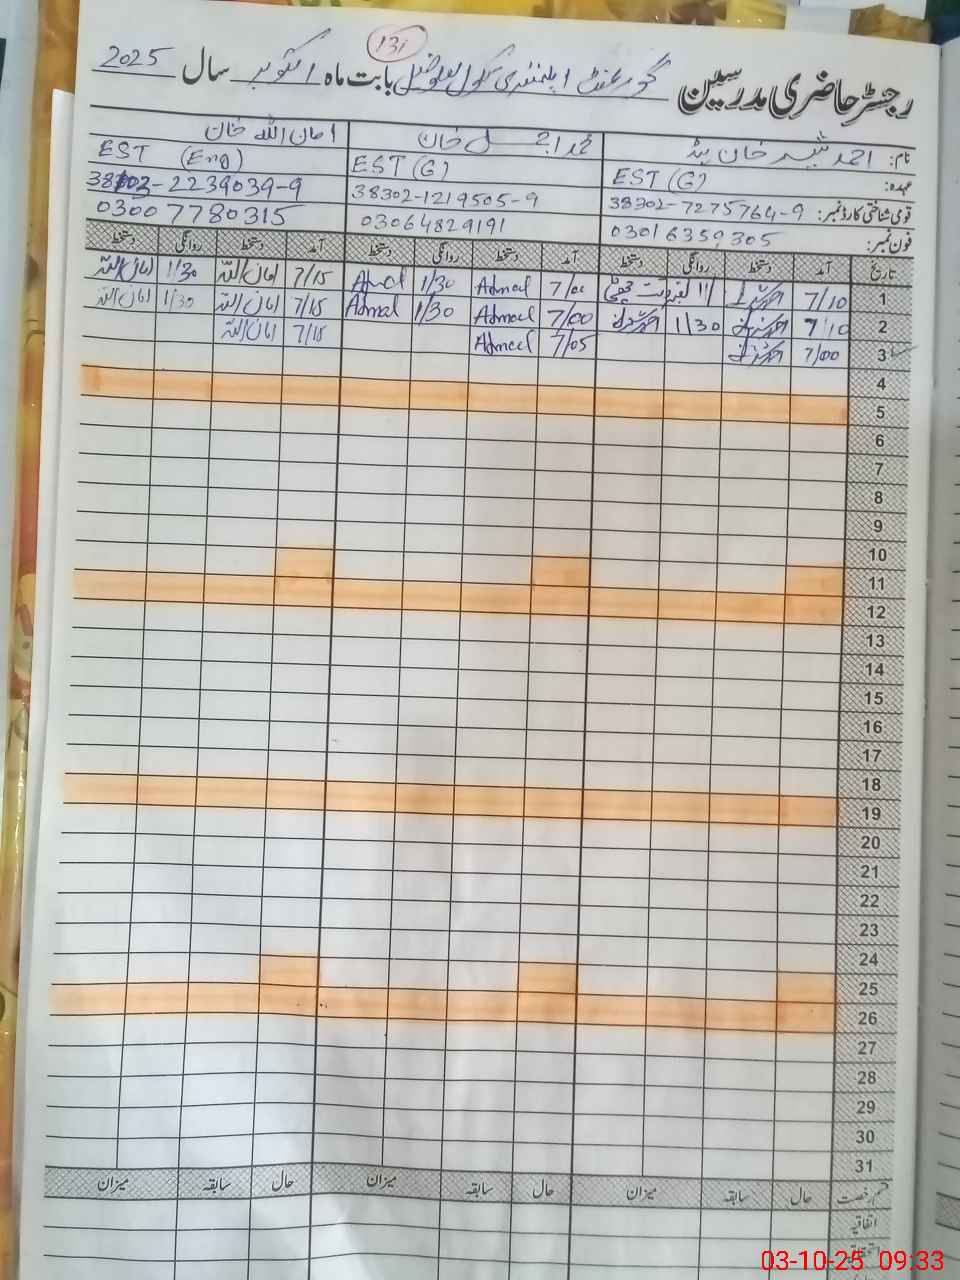 131
رجسٹر حاضری مدرسین گورنمنٹ ایلیمنٹری سکول بابت ماہ اکتوبر سال 2025
نام: احمد شیر خان ہیڈ محمد اجمل خان امان اللہ خان
عہدہ: EST (G) EST (G) EST (Eng)
قومی شناختی کارڈ نمبر: 38302-7275764-9 38302-1219505-9 38302-2239039-9
فون نمبر: 03016359305 03064829191 03007780315
تاریخ آمد دستخط روانگی دستخط آمد دستخط روانگی دستخط آمد دستخط روانگی دستخط
1 7/10 11 7/00 Admad 1/30 7/15 امان اللہ 1/30 امان اللہ
2 7/10 1/30 7/00 Admad 1/30 Admad 7/15 امان اللہ 1/30 امان اللہ
3 7/00 7/05 Admad 7/15 امان اللہ
4
5
6
7
8
9
10
11
12
13
14
15
16
17
18
19
20
21
22
23
24
25
26
27
28
29
30
31
قسم رخصت حال سابقہ میزان حال سابقہ میزان حال سابقہ میزان
اتفاقیہ
03-10-25 09:33